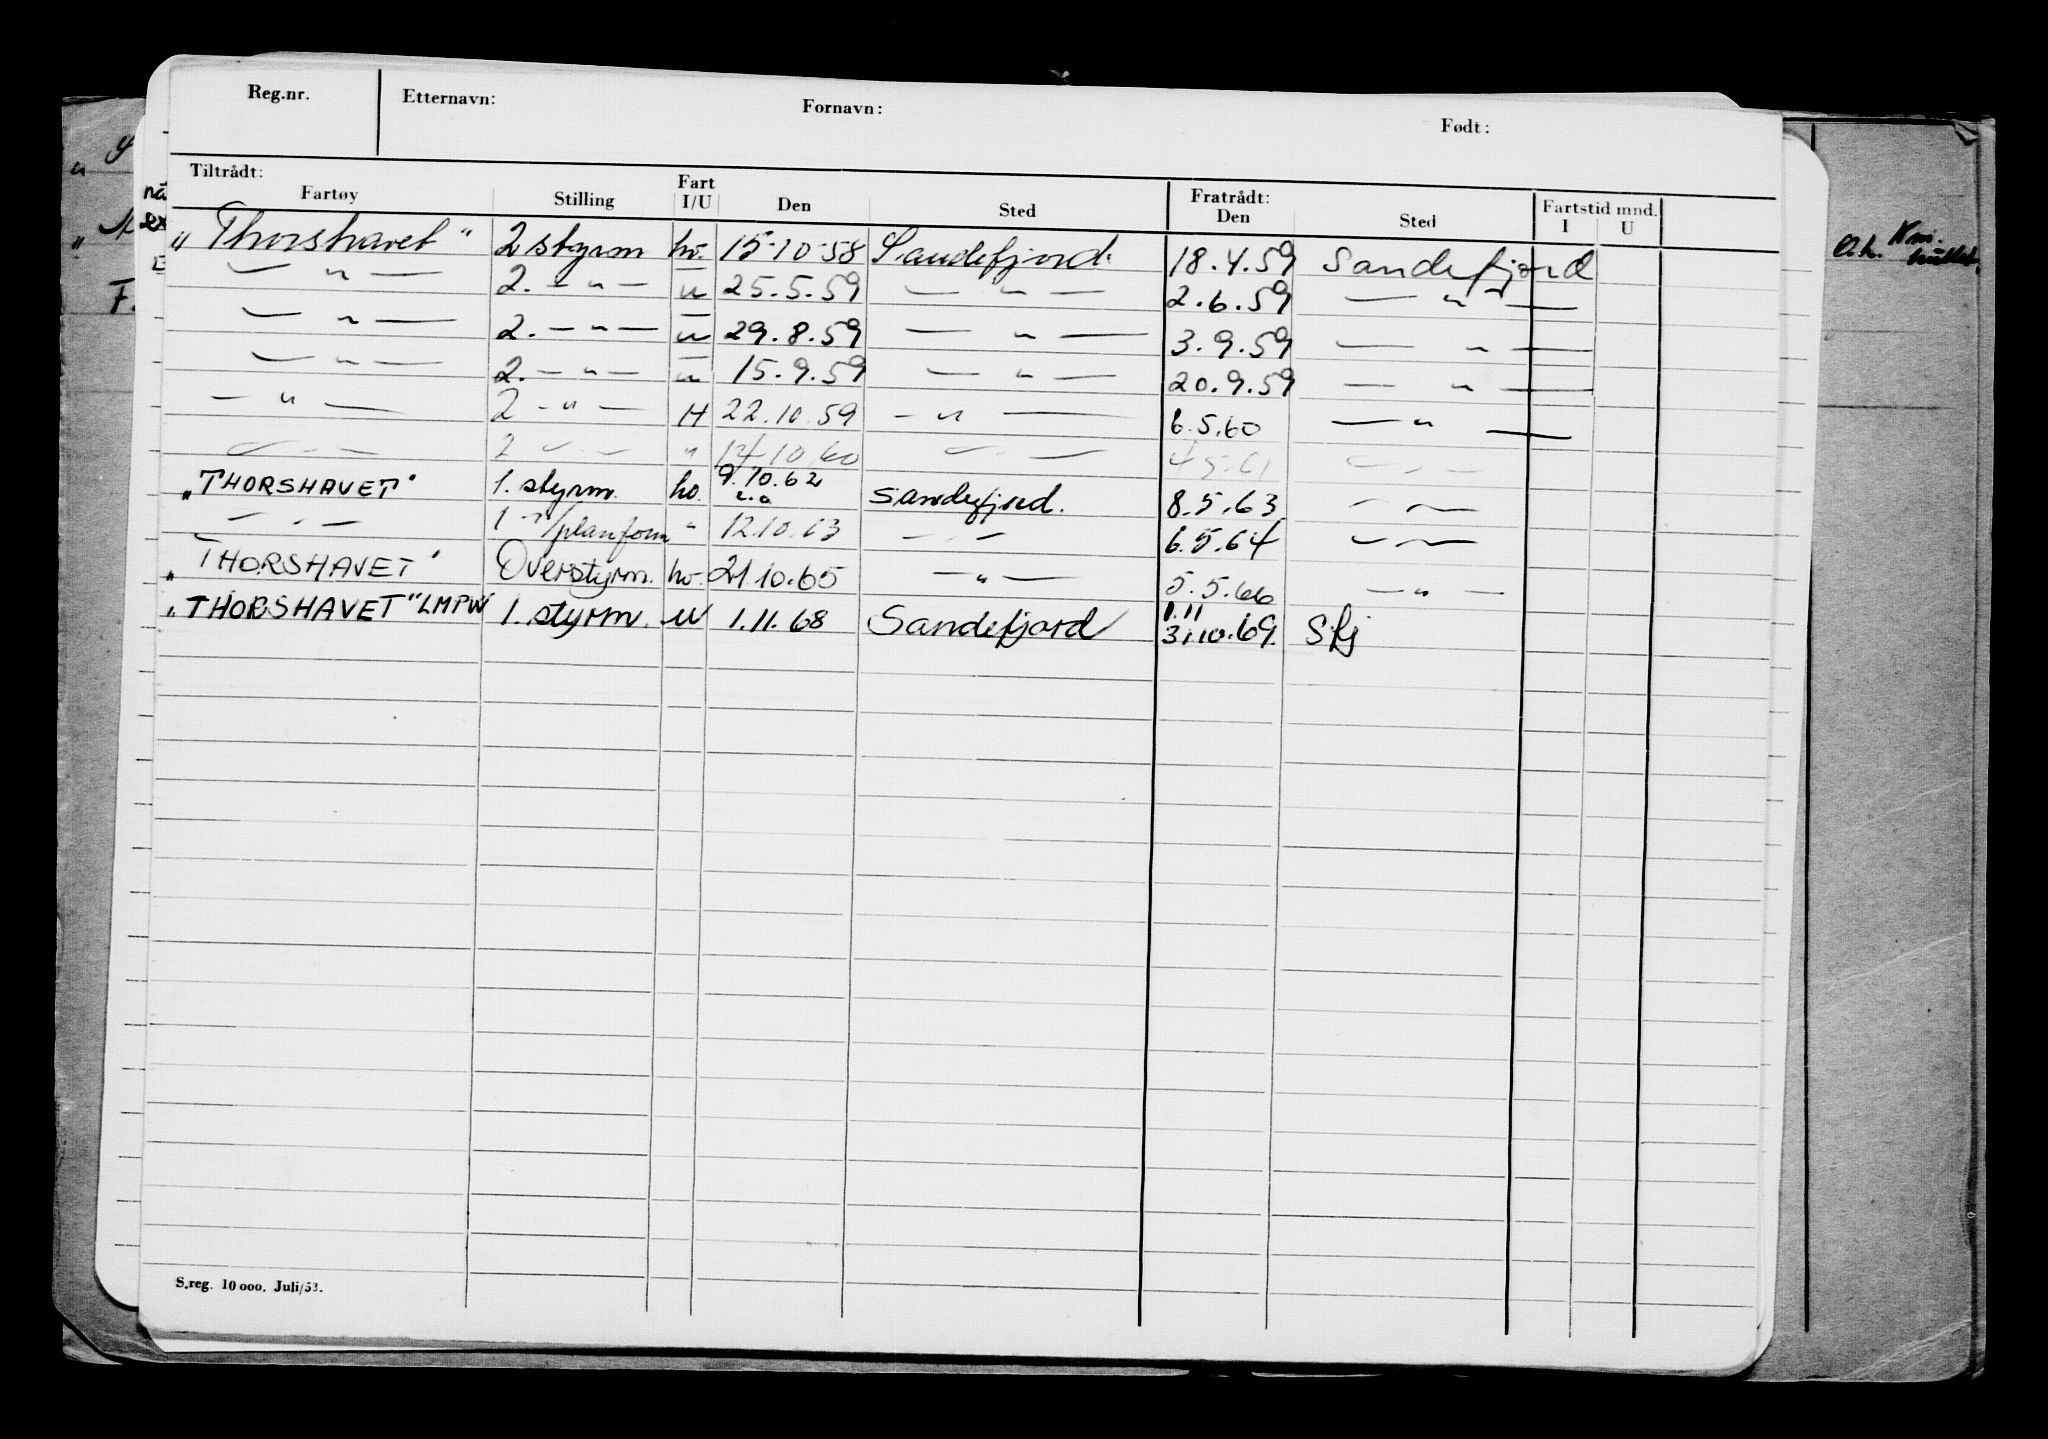 Reg.nr. Etternavn: Fornavn: Født:
Tiltrådt: Fart Fratrådt: Fartstid mnd.
Fartøy Stilling I/U Den Sted Den Sted I U
„Thorshavet" 2 styrm hv. 15-10-58 Sandefjord. 18.4.59 Sandefjord
— " — 2. — " — " 25.5.59 — " — 2.6.59 — " —
— " — 2. — " — " 29.8.59 — " — 3.9.59 — " —
— " — 2. — " — " 15.9.59 — " — 20.9.59 — " —
— " — 2 — " — H 22.10.59 — " — 6.5.60 — " —
— " — 2 — " — " 14.10.60 — " — 4.5.61 — " —
„THORSHAVET" 1. styrm. hv. 9.10.62 Sandefjord. 8.5.63 — " —
— " — 1 — " — " 12.10.63 — " — 6.5.64 — " —
„THORSHAVET" Overstyrm. hv. 21.10.65 — " — 5.5.66 — " —
„THORSHAVET" LMPW 1. styrm. U 1.11.68 Sandefjord 1.11
31.10.69. Sfj
S.reg. 10 000. Juli/53.